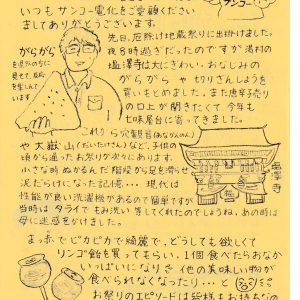 いつもサンコー電化をご愛顧ください
ましてありがとうございます。
サンコー
先日、厄除け地蔵祭りに出掛けました。
夜8時過ぎだったのですが湯村の
塩澤寺は大にぎわい、おなじみの
がらがら や 切りさんしょうを
買いもとめました。また唐辛子売り
の口上が聞きたくて今年も
七味屋台に寄ってきました。
がらがら
を県外の方に
見せて、反応
を楽しんで
います
これから穴観音(あなかんのん)
や大嶽山(だいたけさん)など、子供の
頃から通ったお祭りが次々にあります。
小さな時ぬかるんだ階段から足を滑らせ
泥だらけになった記憶・・・ 現代は
性能が良い洗濯機があるので簡単ですが
当時はタライでもみ洗い等してくれたのでしょうね、あの時は
母に迷惑をかけました。
塩澤寺
まっ赤でピカピカで綺麗で、どうしても欲しくて
リンゴ飴を買ってもらい、1個食べたらおなか
いっぱいになり 他の美味しい物が
食べられなくなったり・・・と
お祭りのエピソードは皆様もお持ちなの